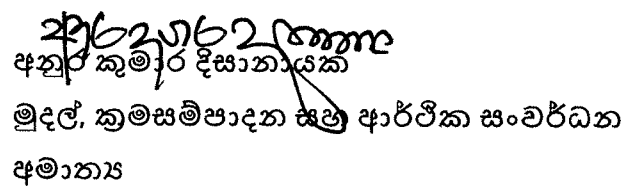 අනුර කුමාර දිසානායක
මුදල්, ක්‍රමසම්පාදන සහ ආර්ථික සංවර්ධන
අමාත්‍ය